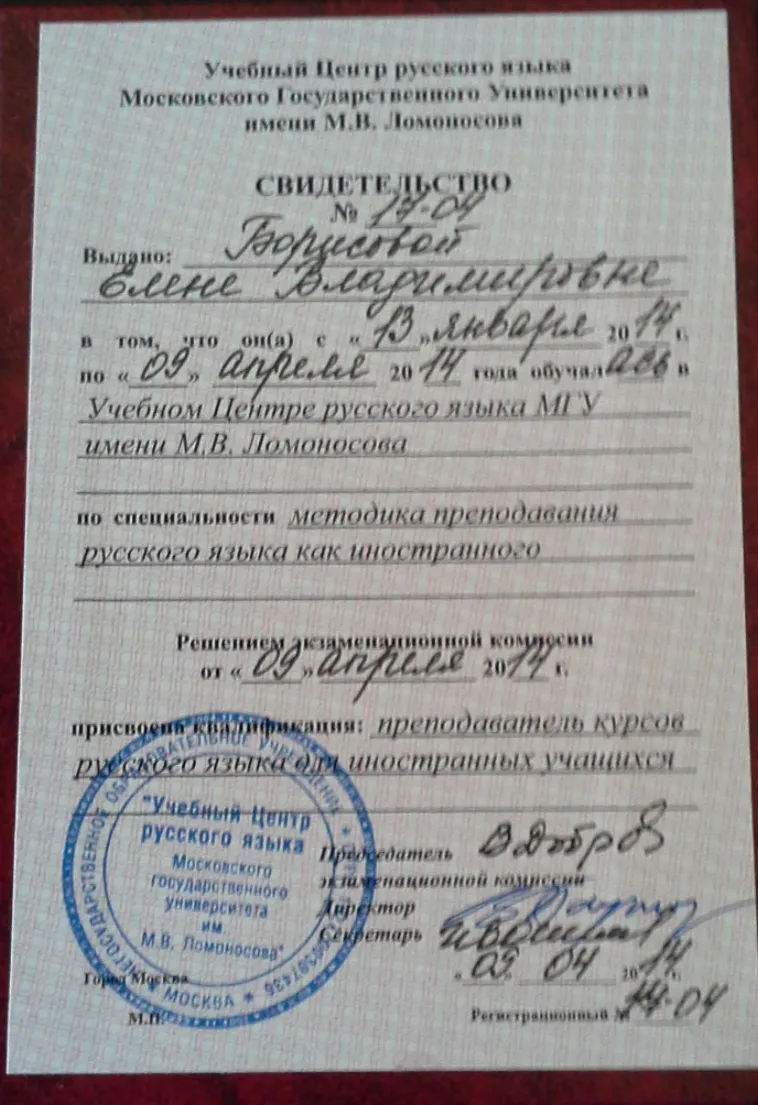 Учебный Центр русского языка
Московского Государственного Университета
имени М.В. Ломоносова
СВИДЕТЕЛЬСТВО
№ 17-04
Выдано: Борисовой
Елене Владимировне
в том, что он(а) с «13» января 2014 г.
по «09» апреля 2014 года обучалась в
Учебном Центре русского языка МГУ
имени М.В. Ломоносова
по специальности методика преподавания
русского языка как иностранного
Решением экзаменационной комиссии
от «09» апреля 2014 г.
присвоена квалификация: преподаватель курсов
русского языка для иностранных учащихся
НЕГОСУДАРСТВЕННОЕ ОБРАЗОВАТЕЛЬНОЕ УЧРЕЖДЕНИЕ
* МОСКВА *
"Учебный Центр
русского языка
Московского
государственного
университета
им.
М.В. Ломоносова"
Председатель
экзаменационной комиссии
Директор
Секретарь
«09» 04 2014 г.
Город Москва
М.П.
Регистрационный № -04